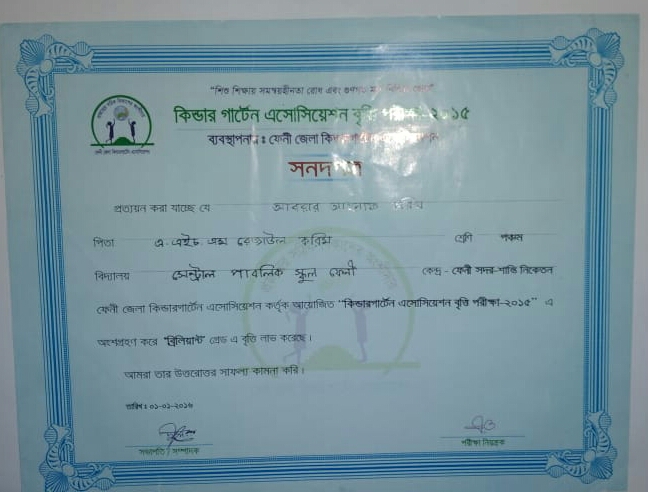 "শিশু শিক্ষায় সমন্বয়হীনতা রোধ এবং গুণগত
কিন্ডার গার্টেন এসোসিয়েশন বৃত্তি পরীক্ষা-২০১৫
ব্যবস্থাপনায় : ফেনী জেলা
সনদপত্র
প্রত্যয়ন করা যাচ্ছে যে আবরার
পিতা এ.এইচ.এম রেজাউল করিম শ্রেণি পঞ্চম
বিদ্যালয় সেন্ট্রাল পাবলিক স্কুল ফেনী কেন্দ্র - ফেনী সদর-শান্তি নিকেতন
ফেনী জেলা কিন্ডারগার্টেন এসোসিয়েশন কর্তৃক আয়োজিত "কিন্ডারগার্টেন এসোসিয়েশন বৃত্তি পরীক্ষা-২০১৫" এ
অংশগ্রহণ করে "ব্রিলিয়ান্ট" গ্রেড এ বৃত্তি লাভ করেছে।
আমরা তার উত্তরোত্তর সাফল্য কামনা করি।
তারিখ : ০১-০১-২০১৬
সভাপতি / সম্পাদক পরীক্ষা নিয়ন্ত্রক